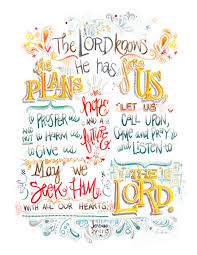 The LORD knows
the PLANS
He has
for US,
to PROSPER us
and NOT to HARM us,
to GIVE us
HOPE
and a
future
"LET US
CALL UPON,
come and pray to
and LISTEN TO
MAY We
SEEK Him
WITH ALL OUR HEARTS.
THE
LORD.
Jeremiah